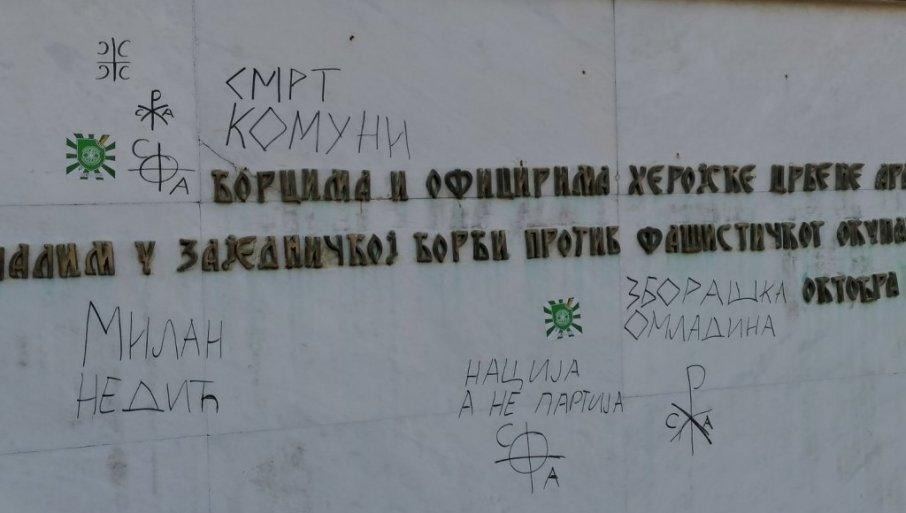 СМРТ
КОМУНИ
С А
С А
БОРЦИМА И ОФИЦИРИМА ХЕРОЈСКЕ ЦРВЕНЕ
ПАЛИМ У ЗАЈЕДНИЧКОЈ БОРБИ ПРОТИВ ФАШИСТИЧКОГ
ОКТОБРА
ЗБОРАШКА
ОМЛАДИНА
МИЛАН
НЕДИЋ
НАЦИЈА
А НЕ ПАРТИЈА
С А
С А